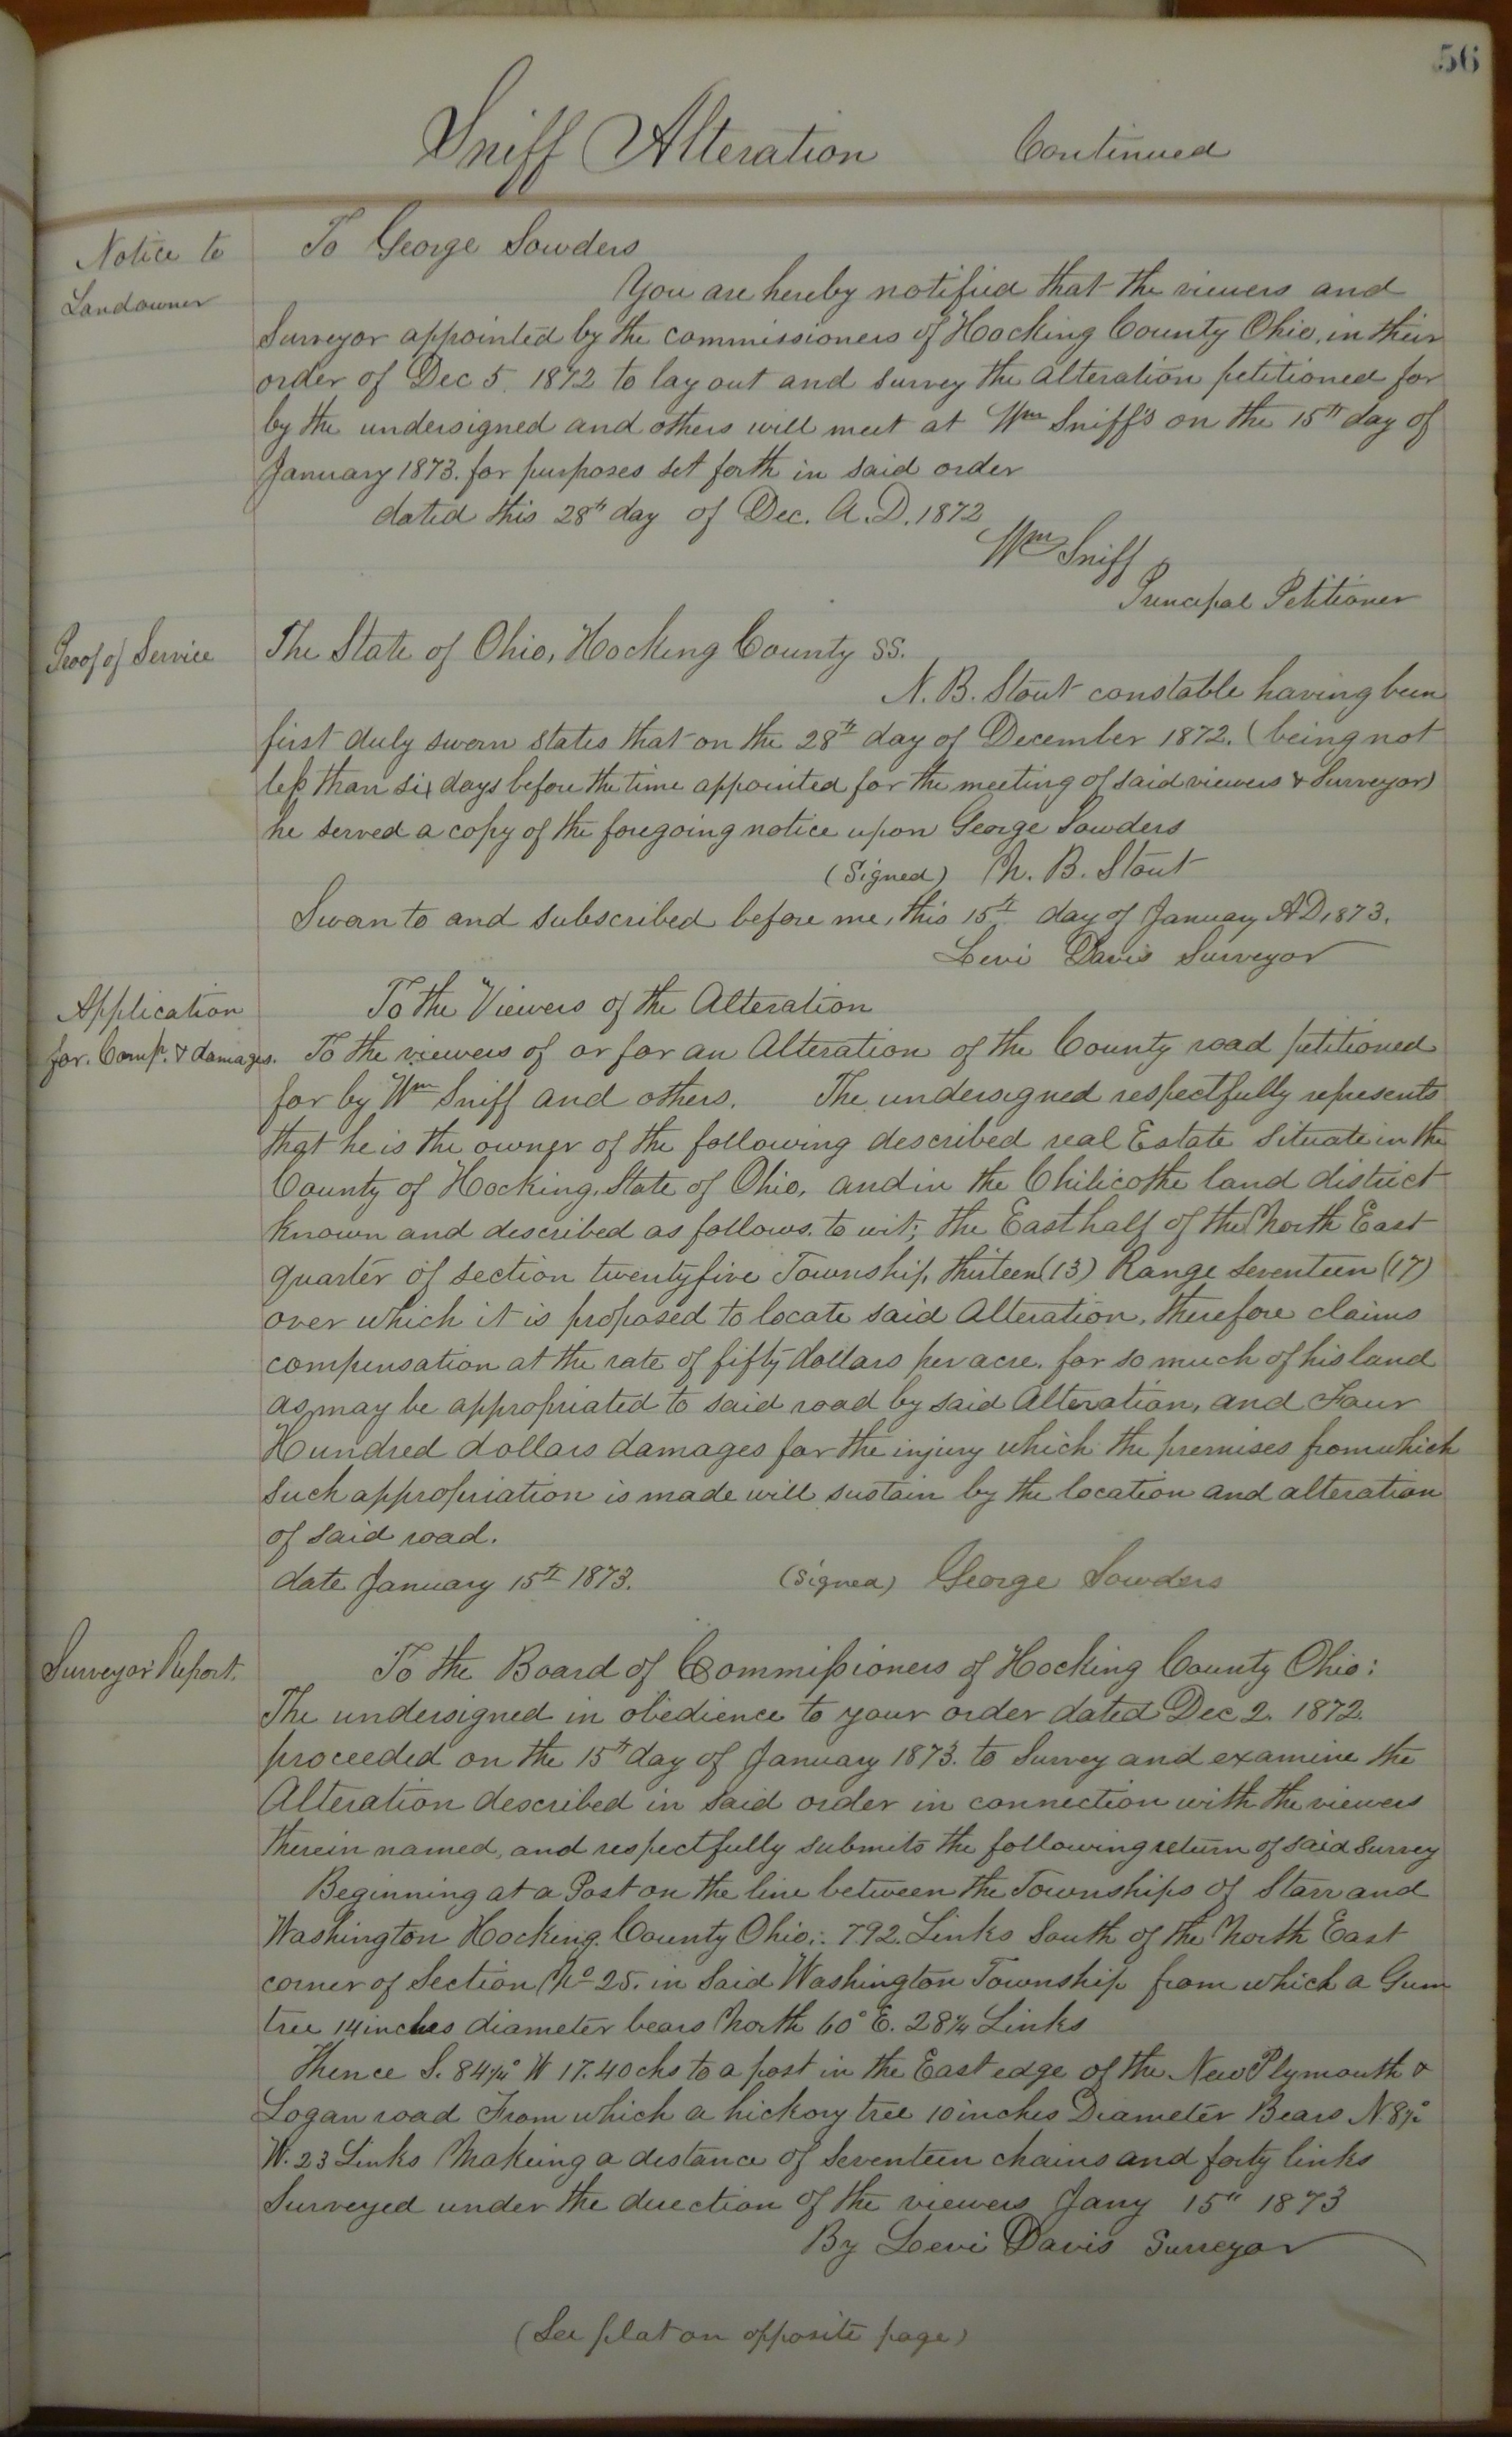 56
Sniff Alteration Continued
Notice to
Landowner
To George Sowders
You are hereby notified that the viewers and
Surveyor appointed by the commissioners of Hocking County Ohio, in their
order of Dec 5 1872 to lay out and survey the alteration petitioned for
by the undersigned and others will meet at Wm Sniff's on the 15th day of
January 1873. for purposes set forth in said order
dated this 28th day of Dec. A.D. 1872
Wm Sniff
Principal Petitioner
Proof of Service
The State of Ohio, Hocking County SS.
N. B. Stout constable having been
first duly sworn states that on the 28th day of December 1872. (being not
less than six days before the time appointed for the meeting of said viewers & Surveyor)
he served a copy of the foregoing notice upon George Sowders
(Signed) N. B. Stout
Sworn to and subscribed before me, this 15th day of January AD 1873.
Levi Davis Surveyor
Application
for. Comp. & damages.
To the Viewers of the Alteration
To the viewers of or for an Alteration of the County road petitioned
for by Wm Sniff and others. The undersigned respectfully represents
that he is the owner of the following described real Estate situate in the
County of Hocking, State of Ohio, and in the Chilicothe land district
known and described as follows. to wit; the East half of the North East
quarter of section twentyfive Township, thirteen (13) Range Seventeen (17)
over which it is proposed to locate said Alteration, therefore claims
compensation at the rate of fifty dollars per acre. for so much of his land
as may be appropriated to said road by said Alteration, and Four
Hundred dollars damages for the injury which the premises from which
such appropriation is made will sustain by the location and alteration
of said road.
date January 15th 1873. (Signed) George Sowders
Surveyor Report.
To the Board of Commissioners of Hocking County Ohio:
The undersigned in obedience to your order dated Dec 2. 1872.
proceeded on the 15th day of January 1873. to Survey and examine the
Alteration described in said order in connection with the viewers
therein named, and respectfully submits the following return of said survey
Beginning at a Post on the line between the Townships of Starr and
Washington Hocking County Ohio: 792. Links South of the North East
corner of Section No 25. in Said Washington Township from which a Gum
tree 14 inches diameter bears North 60° E. 28¼ Links
Thence S. 84¼° W 17.40 chs to a post in the East edge of the New Plymouth &
Logan road From which a hickory tree 10 inches Diameter Bears N. 8½°
W. 23 Links Making a distance of Seventeen chains and forty links
Surveyed under the direction of the viewers Jany 15th 1873
By Levi Davis Surveyor
(See plat on opposite page)